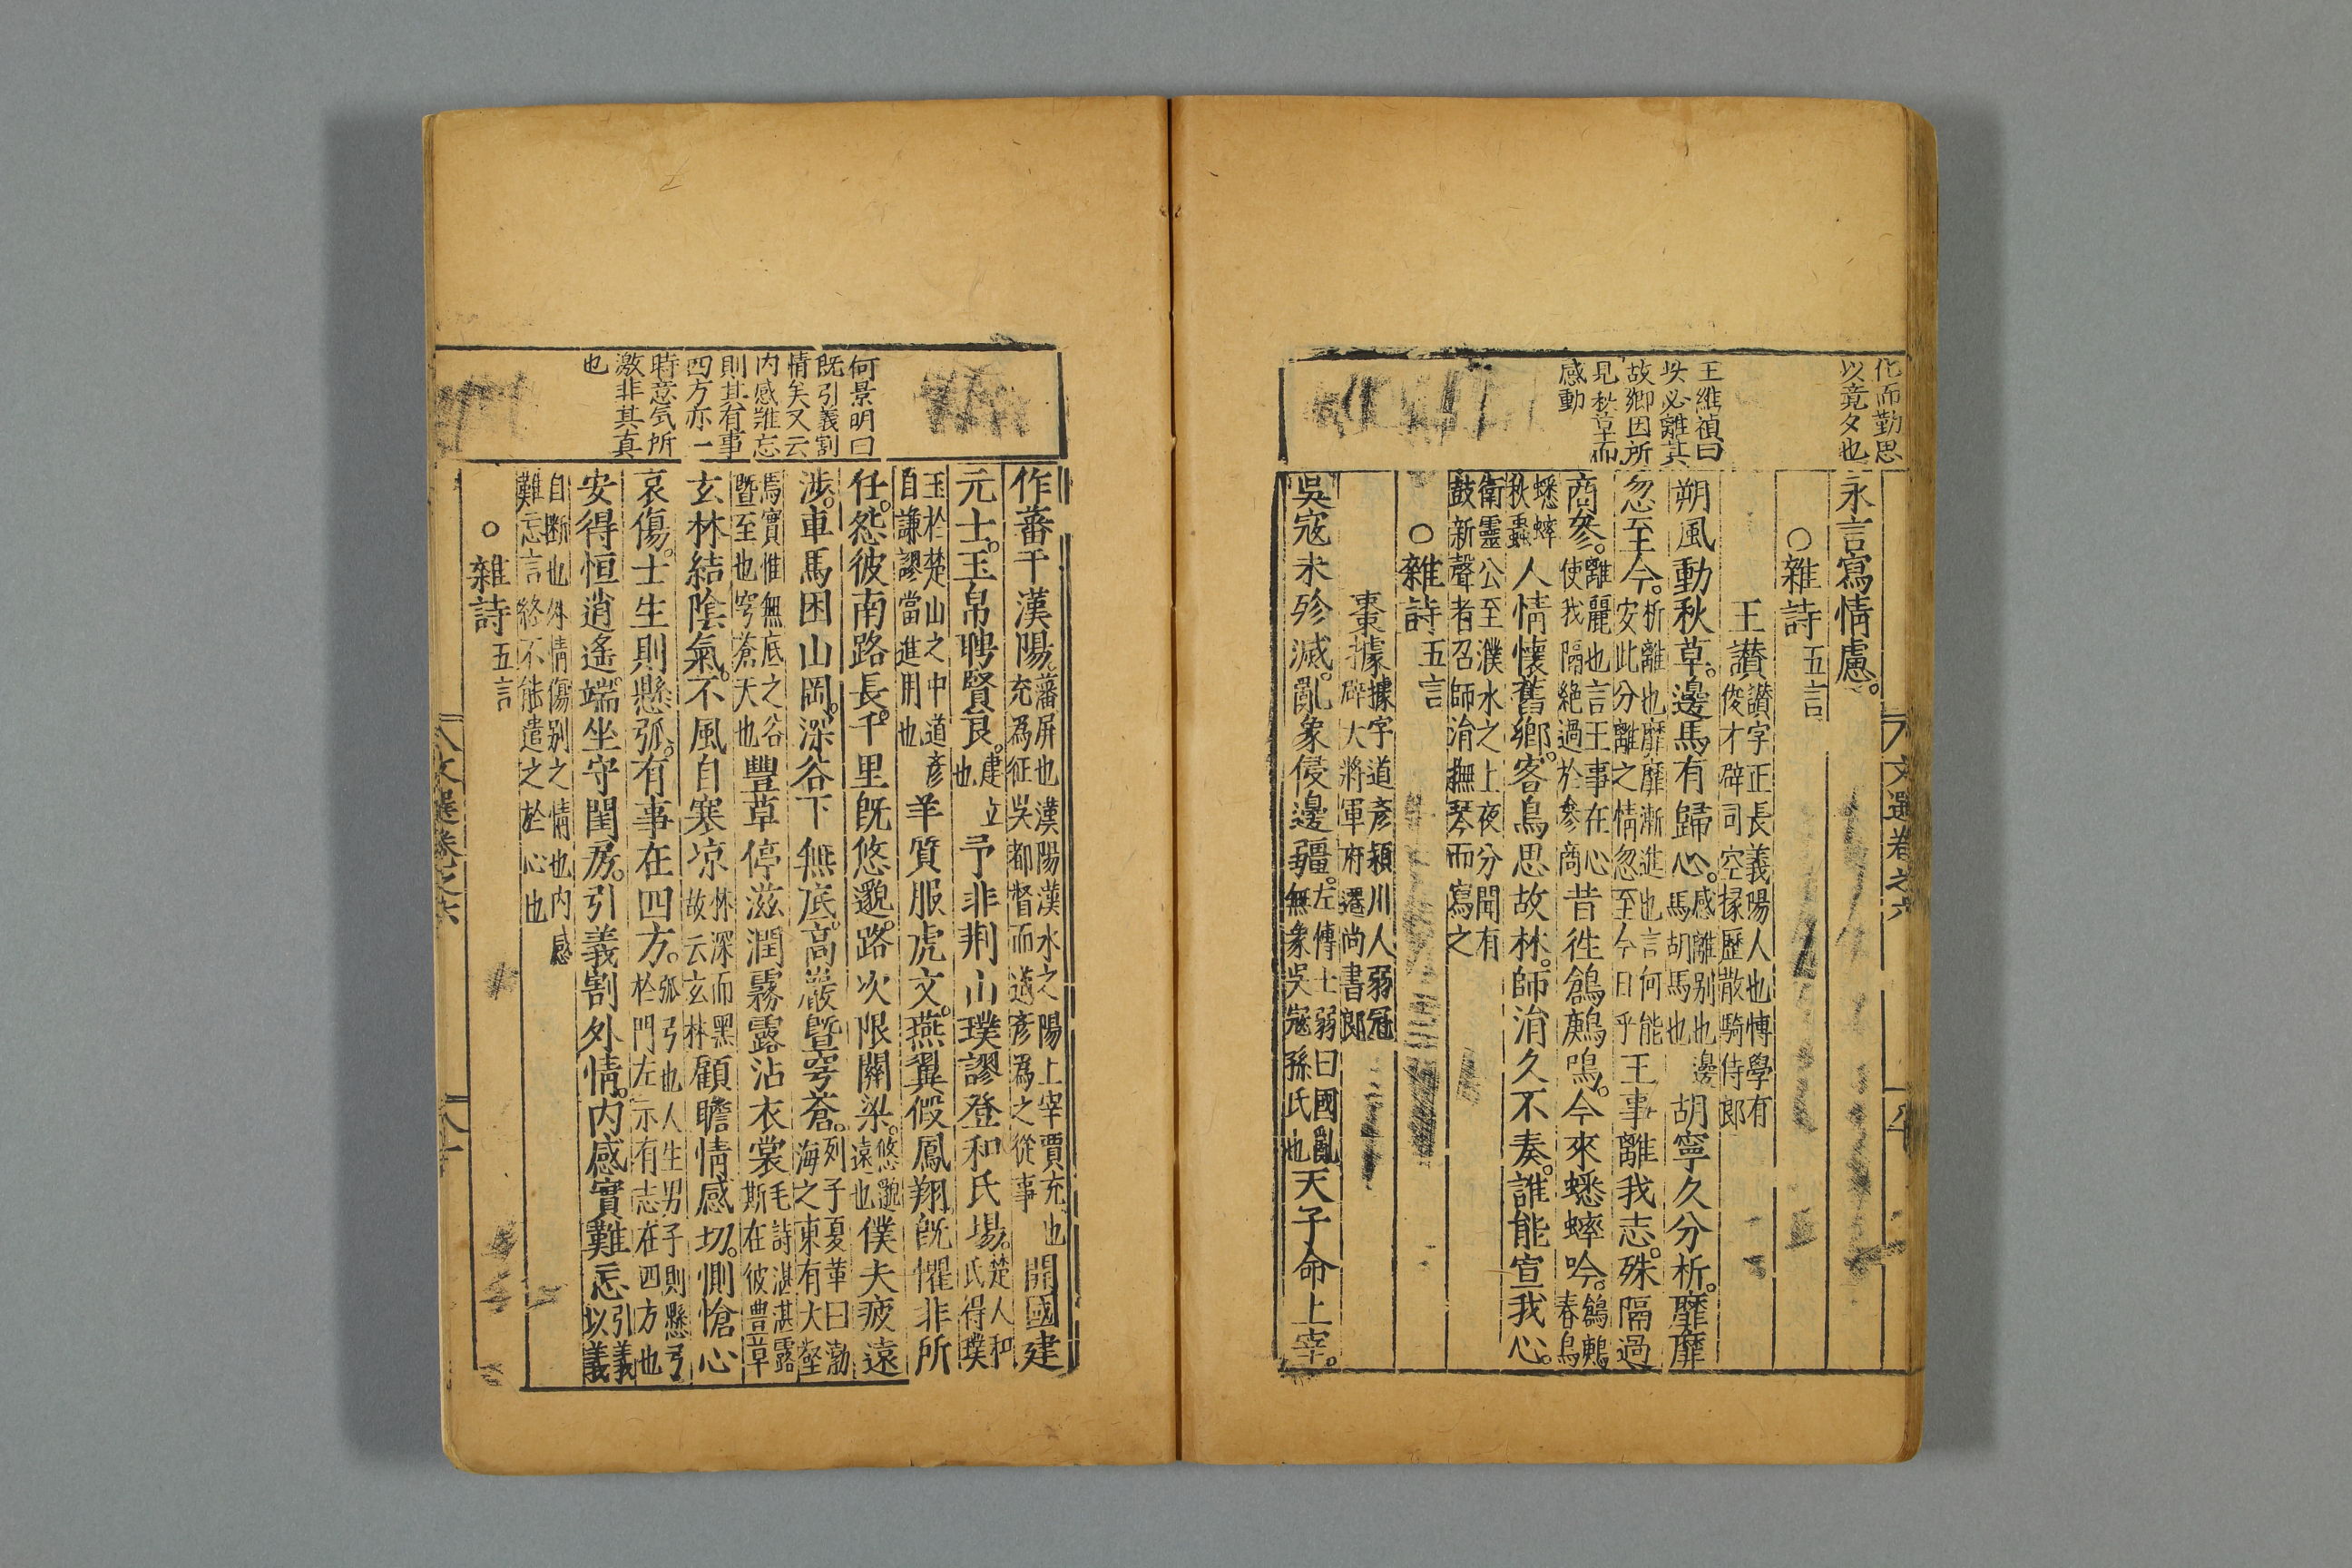 化而勤思
以竟夕也
王維禎曰
必離其
故鄉因所
見秋草而
感動
永言寫情慮。
○雜詩五言
王讃讃字正長義陽人也博學有
俊才辟司空掾歷散騎侍郎
朔風動秋草。邊馬有歸心。感離别也邊
馬胡馬也胡寧久分析。靡靡
忽至今。析離也靡靡漸進也言何能
安此分離之情忽至今日乎王事離我志。殊隔過
商參。離麗也言王事在心
使我隔絶過於參商昔徃鶬鶊鳴。今來蟋蟀吟。鶬鶊
春鳥
蟋蟀
秋蟲人情懷舊鄉。客鳥思故林。師涓久不奏。誰能宣我心。
衛靈公至濮水之上夜分聞有
鼓新聲者召師涓撫琴而寫之
○雜詩五言
棗據據字道彦潁川人弱冠
辟大將軍府遷尚書郎
吳寇未殄滅。亂象侵邊疆。左傳士弱曰國亂
無象吳寇孫氏也天子命上宰。
文選卷之六
何景明曰
既引義割
情矣又云
内感難忘
則其有事
四方亦一
時意気所
激非其真
也
作蕃于漢陽。藩屏也漢陽漢水之陽上宰賈充也
充爲征吳都督而道彦爲之從事開國建
元士。玉帛聘賢良。建立
也予非荆山璞謬登和氏場。楚人和
氏得璞
玉於楚山之中道彦
自謙謬當進用也羊質服虎文。燕翼假鳳翔。既懼非所
任。怨彼南路長。千里既悠邈。路次限關梁。悠邈
遠也僕夫疲遠
渉。車馬困山岡。深谷下無底。高巖暨穹蒼。列子夏革曰渤
海之東有大壑
焉實惟無底之谷
暨至也穹蒼天也豐草停滋潤霧露沾衣裳毛詩湛湛露
斯在彼豐草
玄林結陰氣。不風自寒凉林深而黑
故云玄林顧瞻情感切。惻愴心
哀傷。士生則懸弧。有事在四方。弧弓也人生男子則懸弓
於門左示有志在四方也
安得恒逍遙。端坐守閨房。引義割外情。内感實難忘引義
以義
自断也外情傷别之情也内感
難忘言終不能遣之於心也
○雜詩五言
文選卷之六